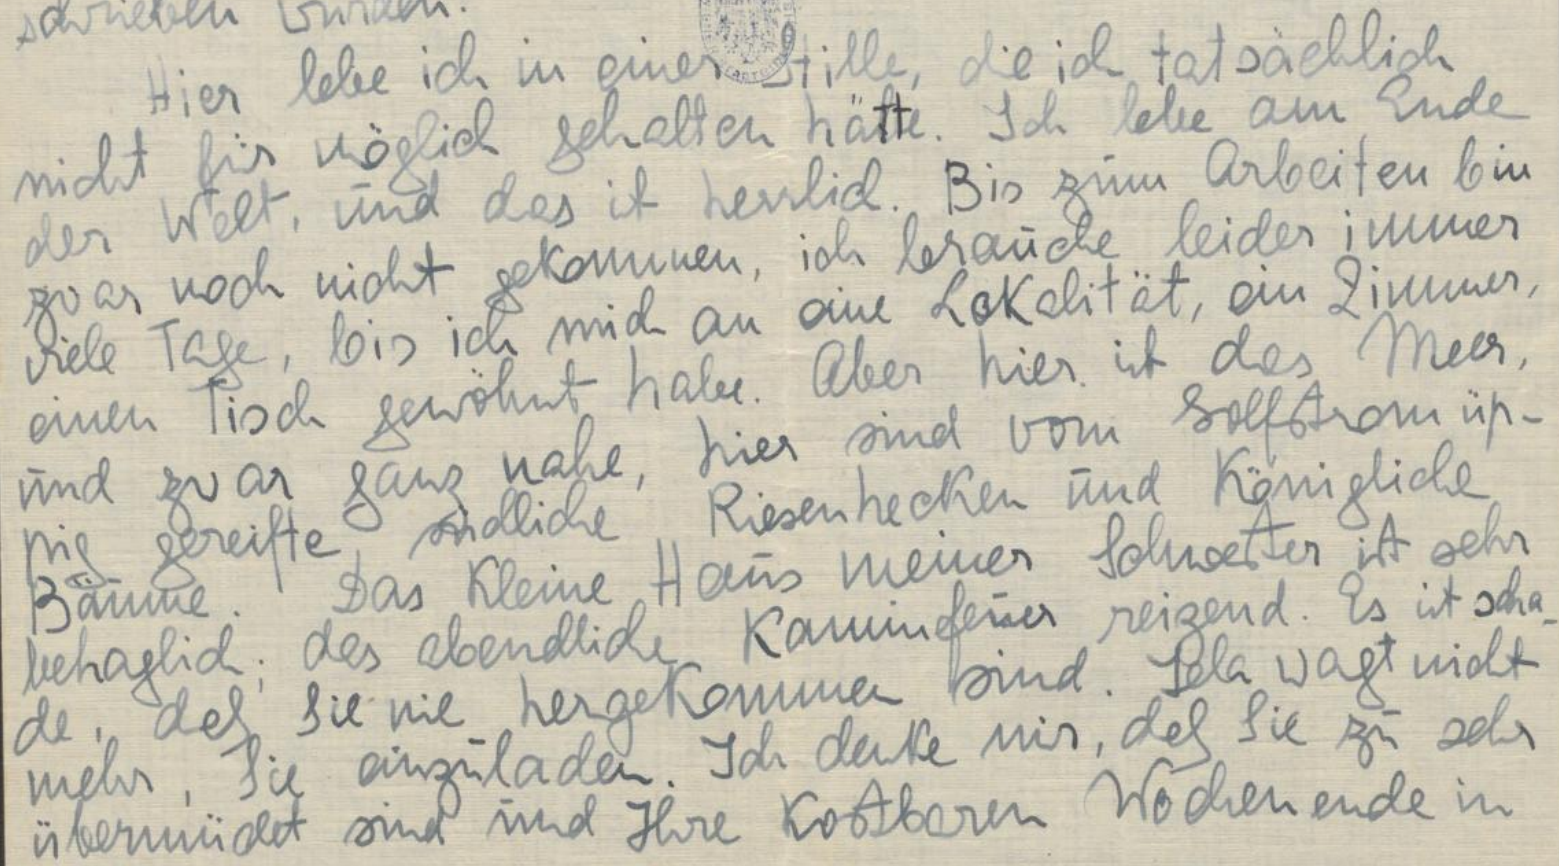 schrieben wurden.
Hier lebe ich in einer Stille, die ich tatsächlich
nicht für möglich gehalten hätte. Ich lebe am Ende
der Welt, und das ist herrlich. Bis zum Arbeiten bin
zwar noch nicht gekommen, ich brauche leider immer
viele Tage, bis ich mich an eine Lokalität, ein Zimmer,
einen Tisch gewöhnt habe. Aber hier ist das Meer,
und zwar ganz nahe, hier sind vom Golfstrom üp-
pig gereifte, südliche Riesenhecken und Königliche
Bäume. Das Kleine Haus meiner Schwester ist sehr
behaglich; das abendliche Kaminfeuer reizend. Es ist scha-
de, daß Sie nie hergekommen sind. Sela wagt nicht
mehr, Sie einzuladen. Ich denke mir, daß Sie zu sehr
übermüdet sind und Ihre Kostbaren Wochenende in